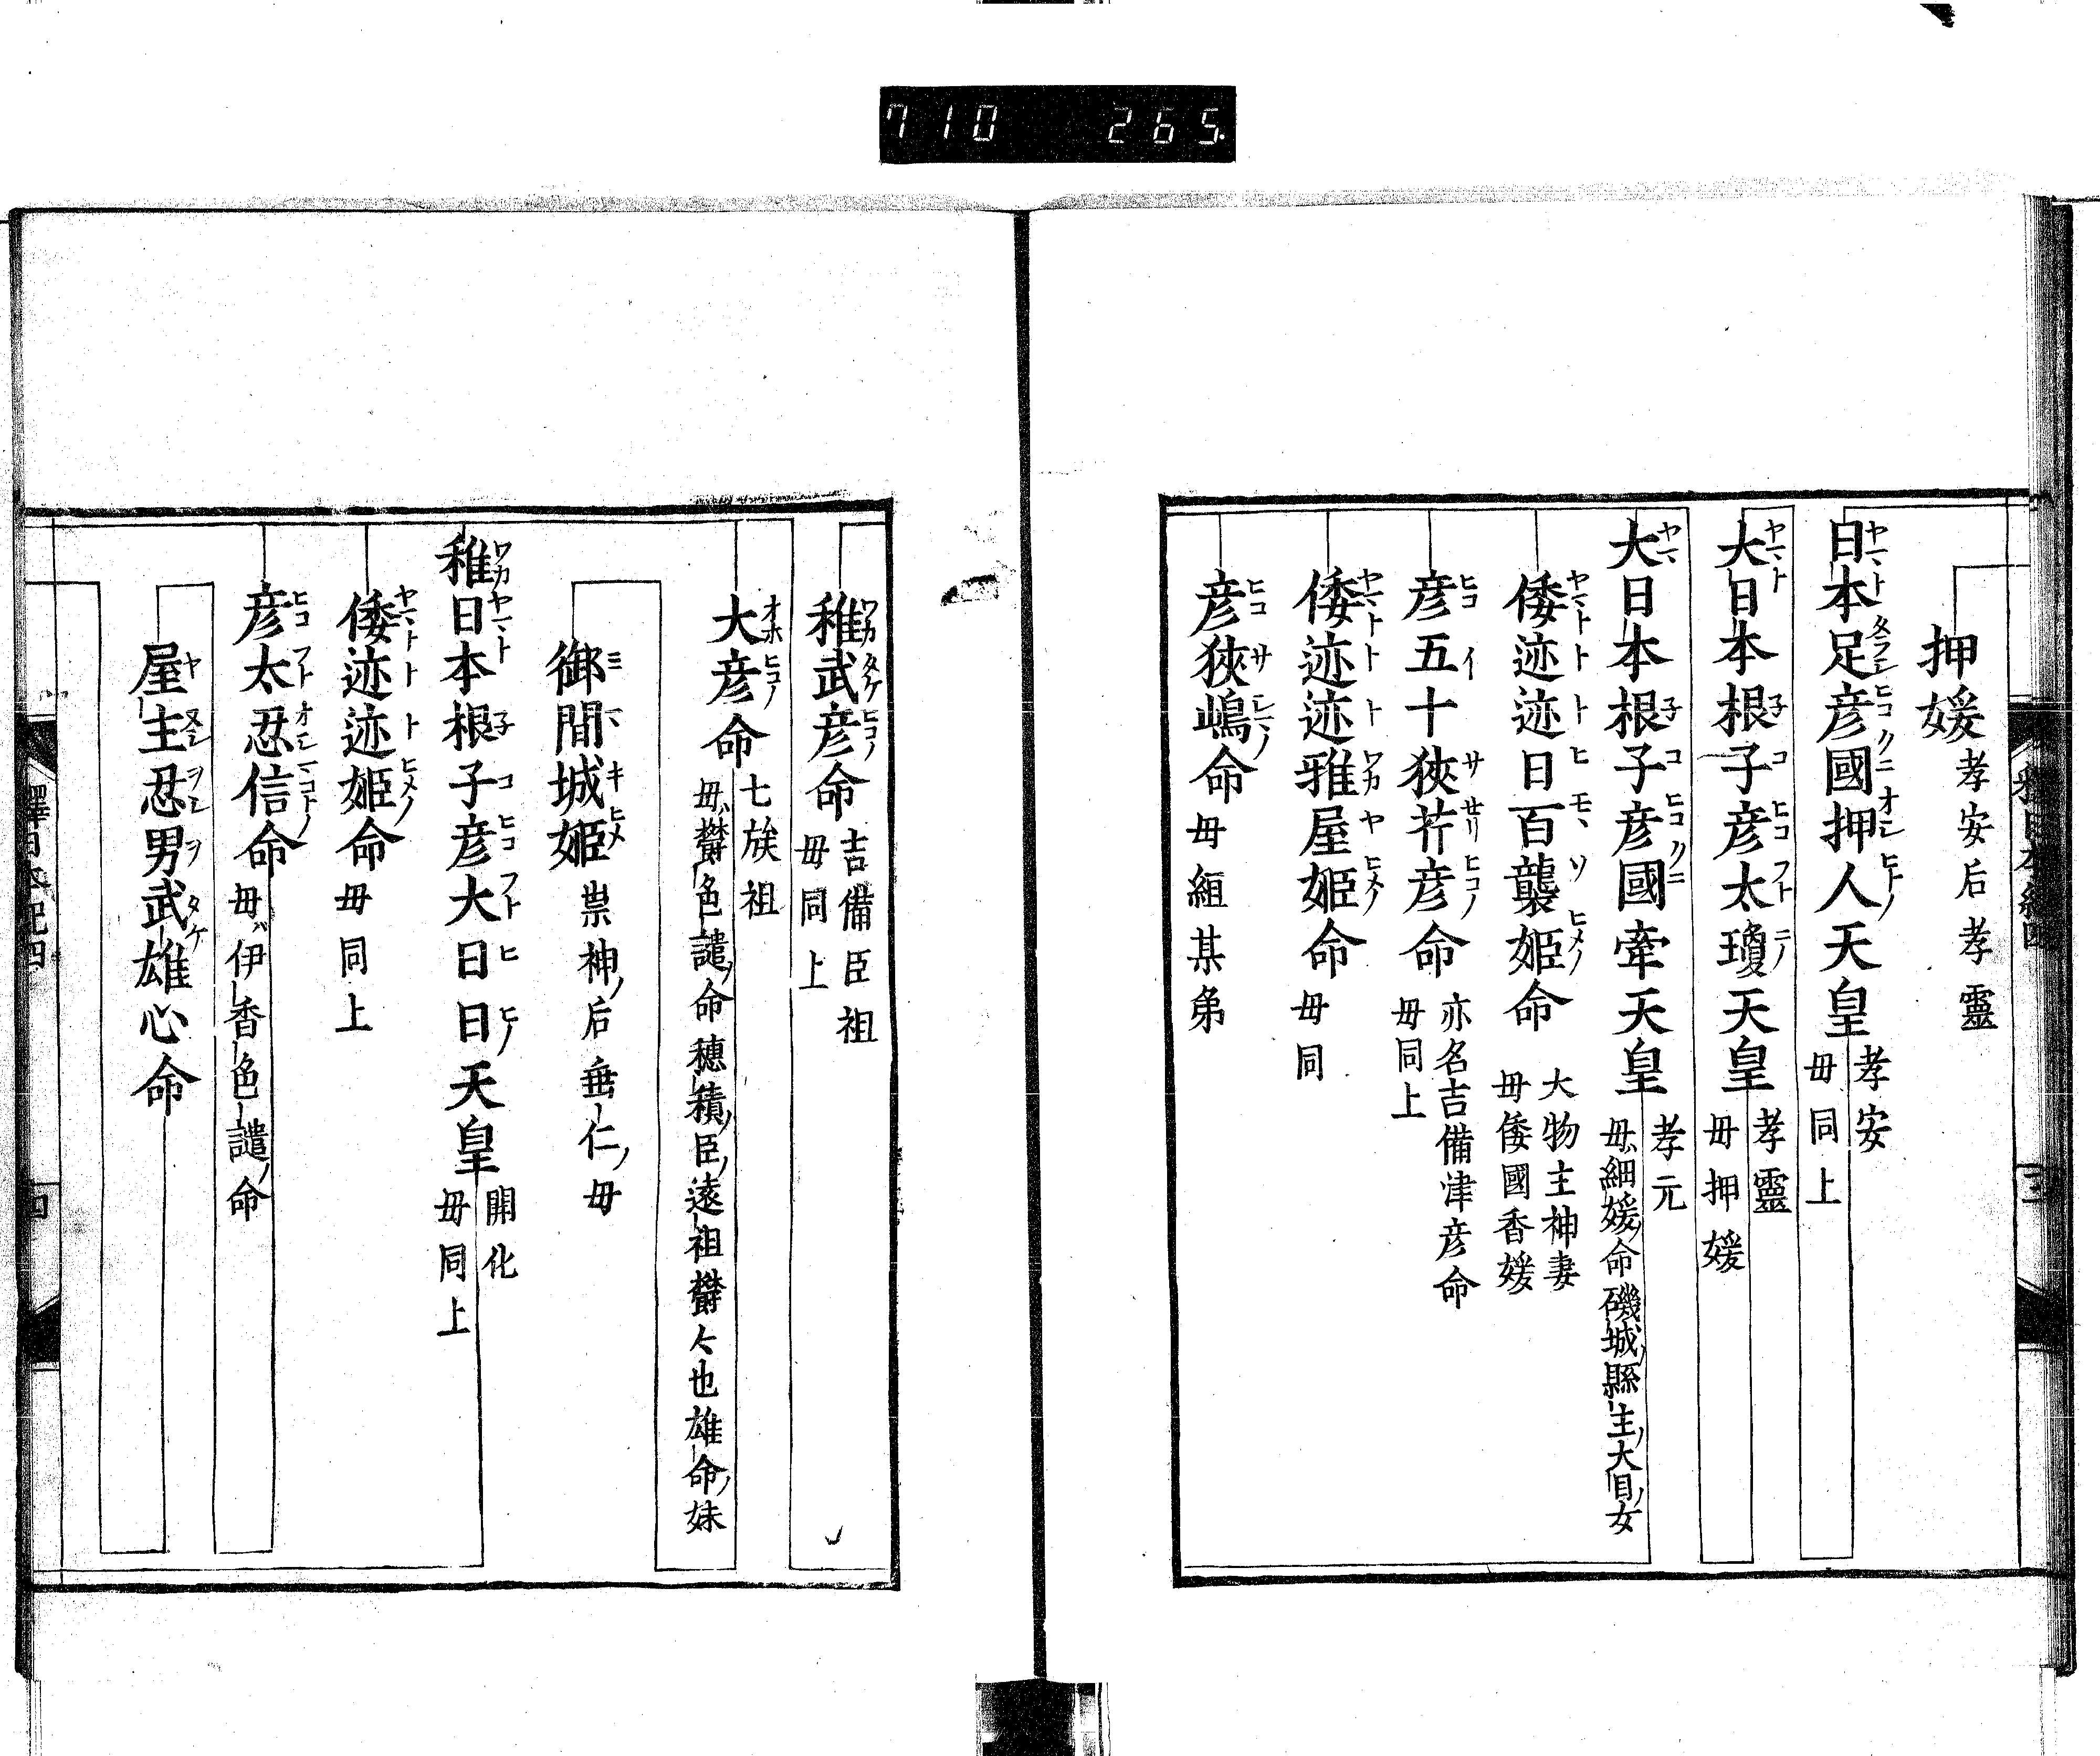 710 265
押媛 孝安后孝靈
日本足彦國押人天皇 孝安
母同上
大日本根子彦太瓊天皇 孝靈
母押媛
大日本根子彦國牽天皇 孝元
母細媛命磯城縣主大目女
倭迹迹日百襲姫命 大物主神妻
母倭國香媛
彦五十狹芹彦命 亦名吉備津彦命
母同上
倭迹迹雅屋姫命 母同
彦狹嶋命 母組某弟
稚武彦命 吉備臣祖
母同上
大彦命 七族祖
母欝色謎命穂積臣遠祖欝々也雄命妹
御間城姫 崇神后垂仁母
稚日本根子彦大日日天皇 開化
母同上
倭迹迹姫命 母同上
彦太忍信命 母伊香色謎命
屋主忍男武雄心命